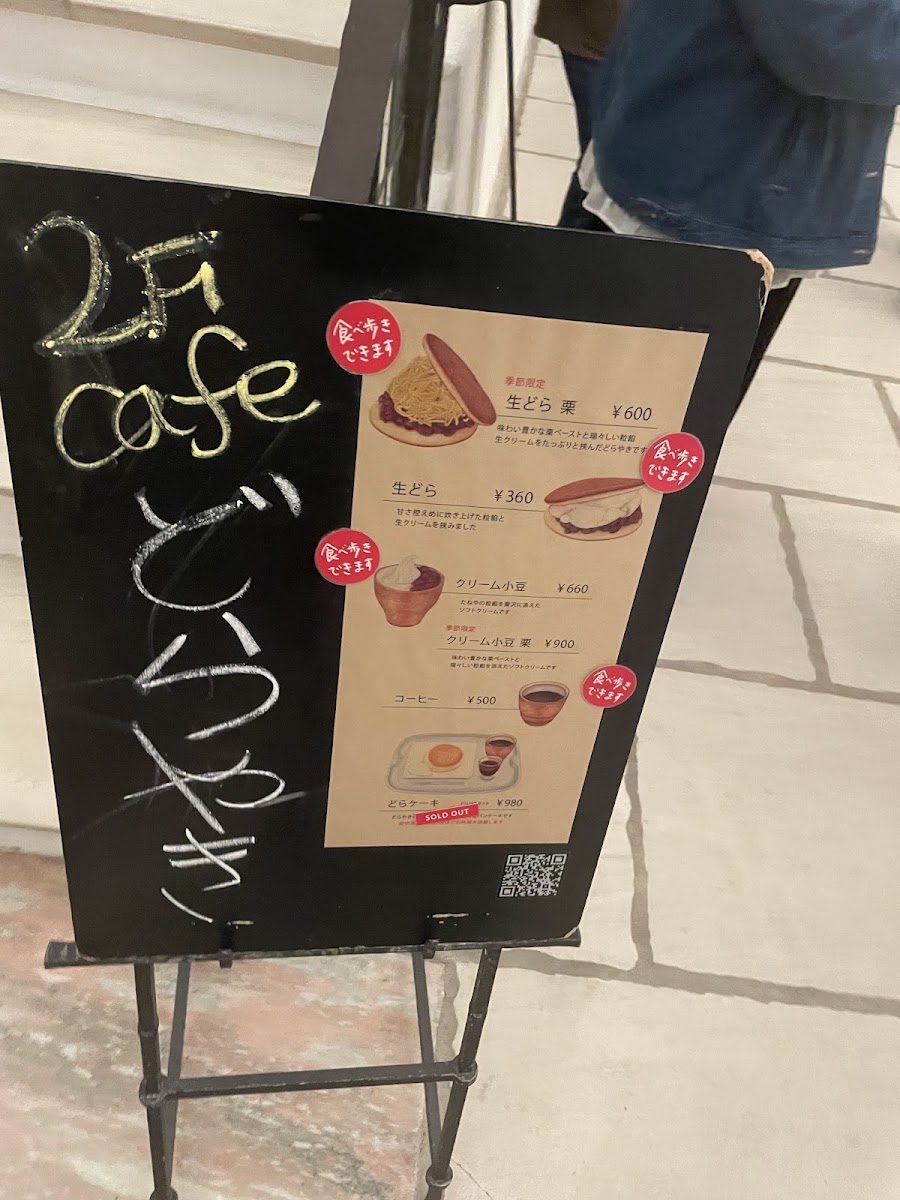 2F
cafe
どらやき
食べ歩き
できます
季節限定
生どら 栗 ¥600
味わい豊かな栗ペーストと瑞々しい粒餡
生クリームをたっぷりと挟んだどらやきです
食べ歩き
できます
生どら ¥360
甘さ控えめに炊き上げた粒餡と
生クリームを挟みました
食べ歩き
できます
クリーム小豆 ¥660
たねやの粒餡を贅沢に添えた
ソフトクリームです
季節限定
クリーム小豆 栗 ¥900
味わい豊かな栗ペーストと
瑞々しい粒餡を添えたソフトクリームです
食べ歩き
できます
コーヒー ¥500
どらケーキ ¥980
SOLD OUT